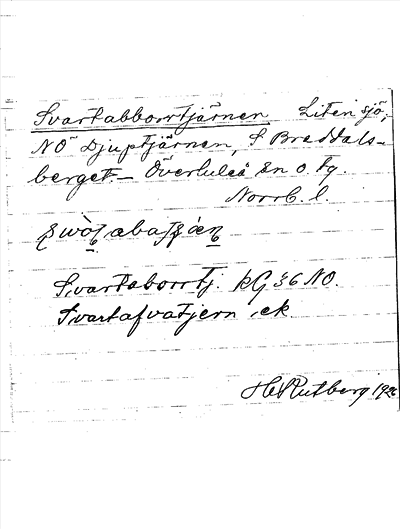 Svartabborrtjärnen Liten sjö,
NÖ Djuptjärnen, S Breddals-
berget. – Överluleå sn o. tg.
Norrb. l.
Svartaborrtj. kG 36 NO.
Svartafvatjern .ek.
H Rutberg 192